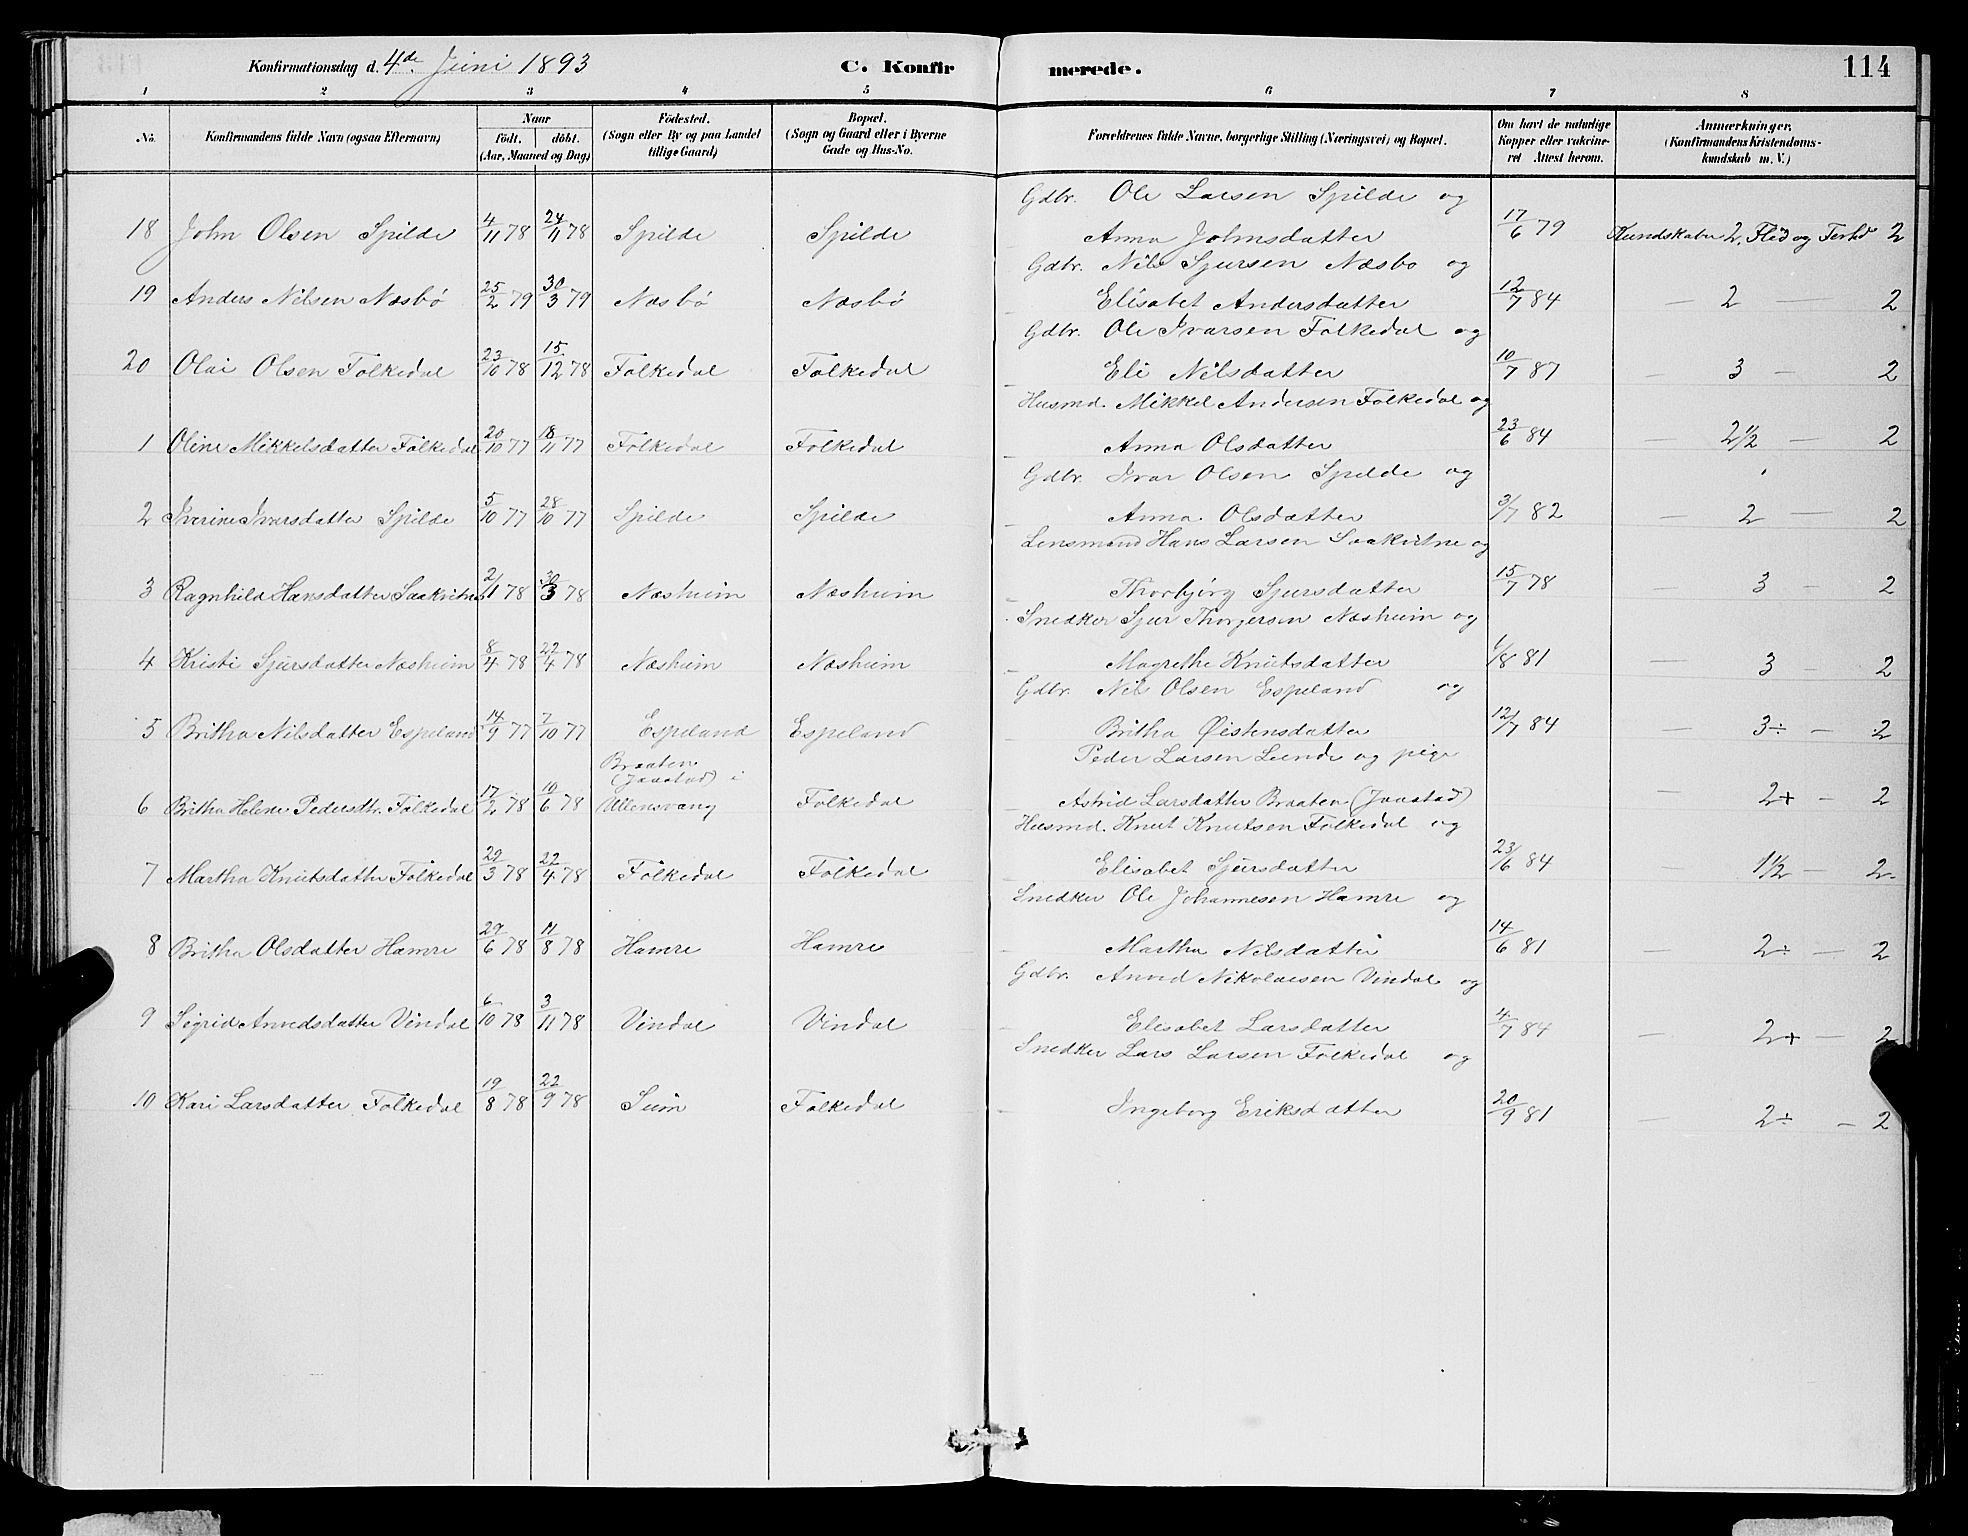 Konfirmationsdag d. 4de Juni 1893 C. Konfirmerede. 114
1 2 3 4 5 6 7 8
No. Konfirmandens fulde Navn (ogsaa Efternavn) Naar födt. döbt. (Aar, Maaned og Dag) Födested. (Sogn eller By og paa Landet tillige Gaard) Bopæl. (Sogn og Gaard eller i Byerne Gade og Hus-No. Forældrenes fulde Navne, borgerlige Stilling (Næringsvei) og Bopæl. Om havt de naturlige Kopper eller vakcineret Attest herom. Anmærkninger. (Konfirmandens Kristendomskundskab m. V.)
Gdbr. Ole Larsen Spilde og
18 John Olsen Spilde 4/11 78 24/11 78 Spilde Spilde Anna Johnsdatter 17/6 79 Kundskaber 2, Flid og Forhd 2
Gdbr. Nils Sjursen Næsbø og
19 Anders Nilsen Næsbø 25/2 79 30/3 79 Næsbø Næsbø Elisabet Andersdatter 12/7 84 — 2 — 2
Gdbr. Ole Ivarsen Folkedal og
20 Olai Olsen Folkedal 23/10 78 15/12 78 Folkedal Folkedal Eli Nilsdatter 10/7 87 — 3 — 2
Husmd. Mikkel Andersen Folkedal og
1 Oline Mikkelsdatter Folkedal 20/10 77 18/11 77 Folkedal Folkedal Anna Olsdatter 23/6 84 — 2½ — 2
Gdbr. Ivar Olsen Spilde og
2 Iverine Ivarsdatter Spilde 5/10 77 28/10 77 Spilde Spilde Anna Olsdatter 3/7 82 — 2 — 2
Lensmand Hans Larsen Saakvitne og
3 Ragnhild Hansdatter Saakvitne 2/1 78 3 78 Næsheim Næsheim Thorbjørg Sjursdatter 15/7 78 — 3 — 2
Snedker Sjur Thorgersen Næsheim og
4 Kristi Sjursdatter Næsheim 8/4 78 22/4 78 Næsheim Næsheim Magrethe Knutsdatter 1/8 81 — 3 — 2
Gdbr. Nils Olsen Espeland og
5 Britha Nilsdatter Espeland 14/9 77 7/10 77 Espeland Espeland Britha Øistensdatter 12/7 84 — 3÷ — 2
Braaten (Jaastad) i Peder Larsen Lunde og pige
6 Britha Helene Pedersdtr. Folkedal 17/2 78 10/6 78 Ullensvang Folkedal Astrid Larsdatter Braaten (Jaastad) — 2+ — 2
Husmd. Knut Knutsen Folkedal og
7 Martha Knutsdatter Folkedal 29/3 78 22/4 78 Folkedal Folkedal Elisabet Sjursdatter 23/6 84 — 1½ — 2
Snedker Ole Johannesen Hamre og
8 Britha Olsdatter Hamre 29/6 78 11/8 78 Hamre Hamre Martha Nilsdatter 14/6 81 — 2÷ — 2
Gdbr. Anved Nikolaisen Vindal og
9 Sigrid Anvedsdatter Vindal 6/10 78 3/11 78 Vindal Vindal Elisabet Larsdatter 4/7 84 — 2+ — 2
Snedker Lars Larsen Folkedal og
10 Kari Larsdatter Folkedal 19/8 78 22/9 78 Seim Folkedal Ingeborg Eriksdatter 20/9 81 — 2÷ — 2